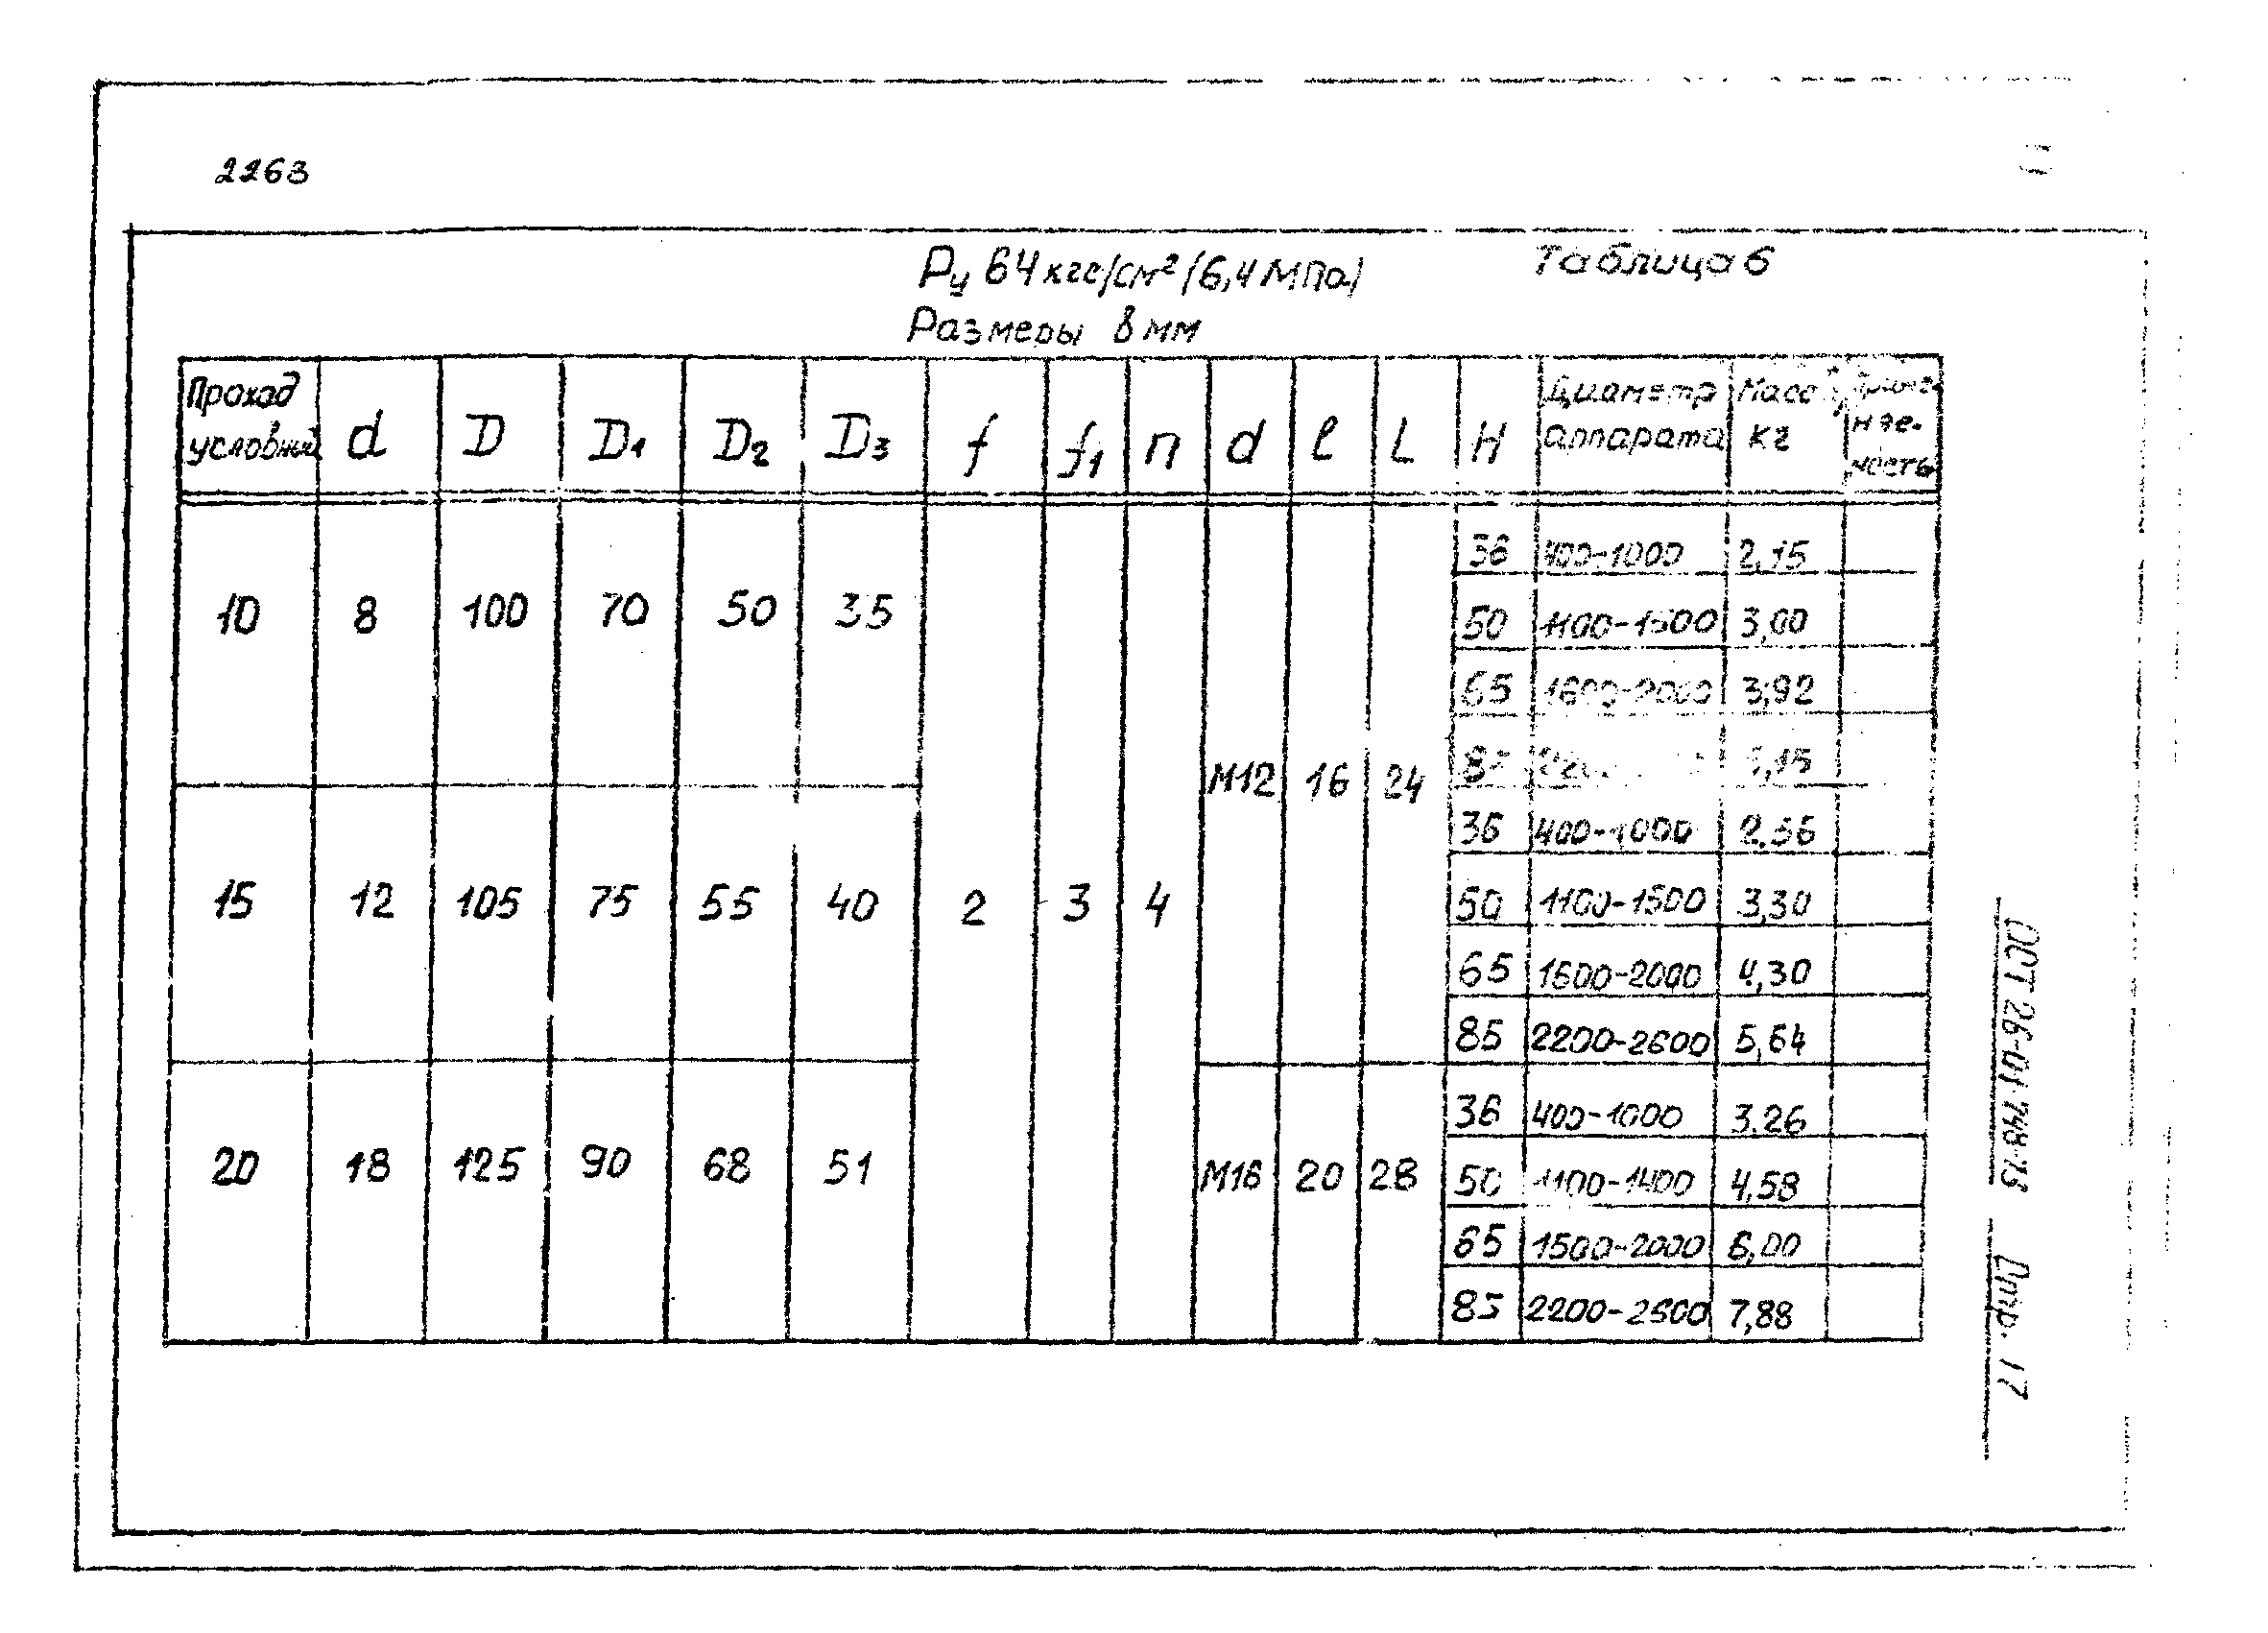 2263
Ру 64 кгс/см² /6,4 МПа/
Таблица 6
Размеры в мм
Проход условный d D D1 D2 D3 f f1 n d l L H Диаметр аппарата Масса кг
10 8 100 70 50 35
15 12 105 75 55 40
20 18 125 90 68 51
2 3 4
М12 16 24
М16 20 28
36 400-1000 2,15
50 1100-1500 3,00
65 1600-2000 3,92
36 400-1000
50 1100-1500 3,30
65 1600-2000 4,30
85 2200-2600 5,64
36 400-1000 3.26
50 1100-1400 4,58
65 1500-2000 6,00
85 2200-2600 7,88
ОСТ 26-01-748-73 Стр. 17